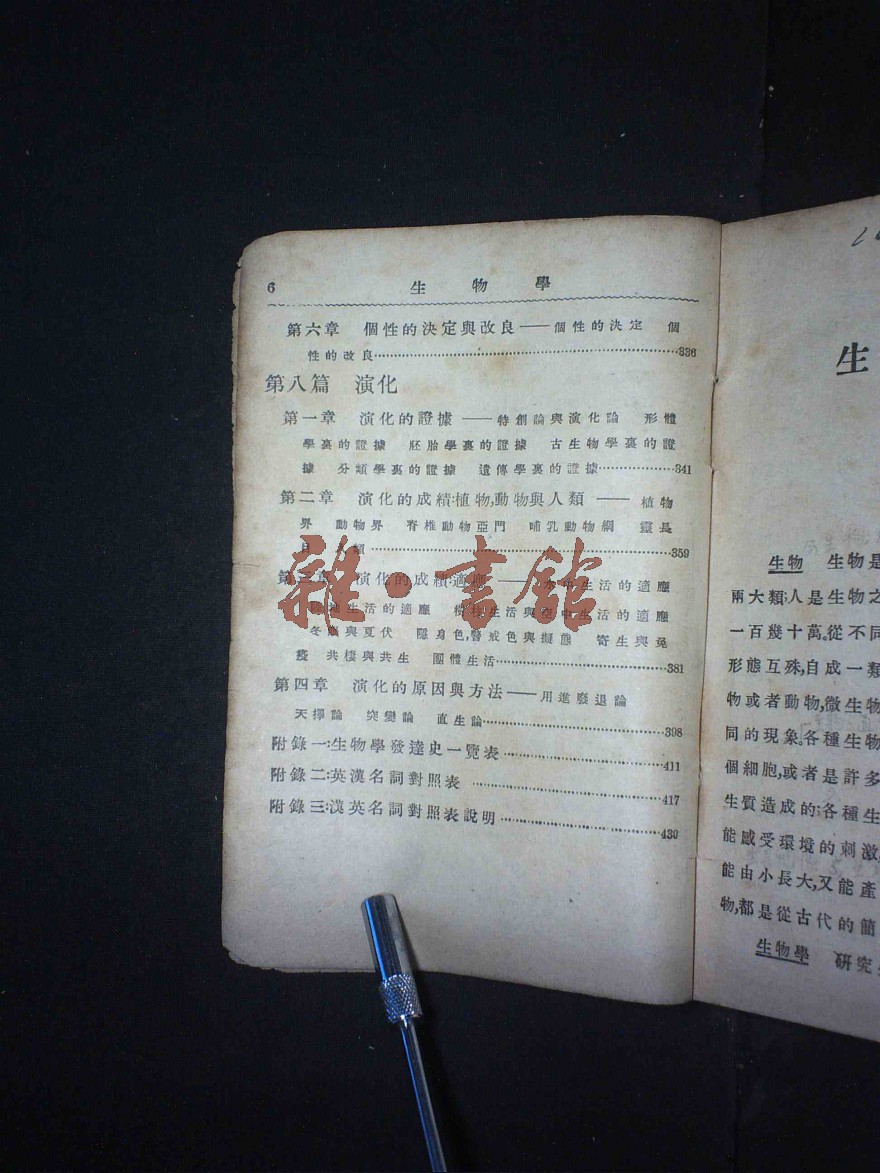 6 生物學
第六章 個性的決定與改良——個性的決定 個
性的改良……336
第八篇 演化
第一章 演化的證據——特創論與演化論 形體
學裏的證據 胚胎學裏的證據 古生物學裏的證
據 分類學裏的證據 遺傳學裏的證據……341
第二章 演化的成績:植物,動物與人類——植物
界 動物界 脊椎動物亞門 哺乳動物綱 靈長
目 人類……359
第三章 演化的成績:適應——水中生活的適應
陸地生活的適應 樹棲生活與空中生活的適應
冬眠與夏伏 隱身色,警戒色與擬態 寄生與免
疫 共棲與共生 團體生活……381
第四章 演化的原因與方法——用進廢退論
天擇論 突變論 直生論……398
附錄一:生物學發達史一覽表……411
附錄二:英漢名詞對照表……417
附錄三:漢英名詞對照表說明……430
雜·書館
生
生物 生物是
兩大類:人是生物之
一百幾十萬。從不同
形態互殊,自成一類
物或者動物,微生物
同的現象。各種生物
個細胞,或者是許多
生質造成的:各種生
能感受環境的刺激,
能由小長大,又能產
物,都是從古代的簡
生物學 研究